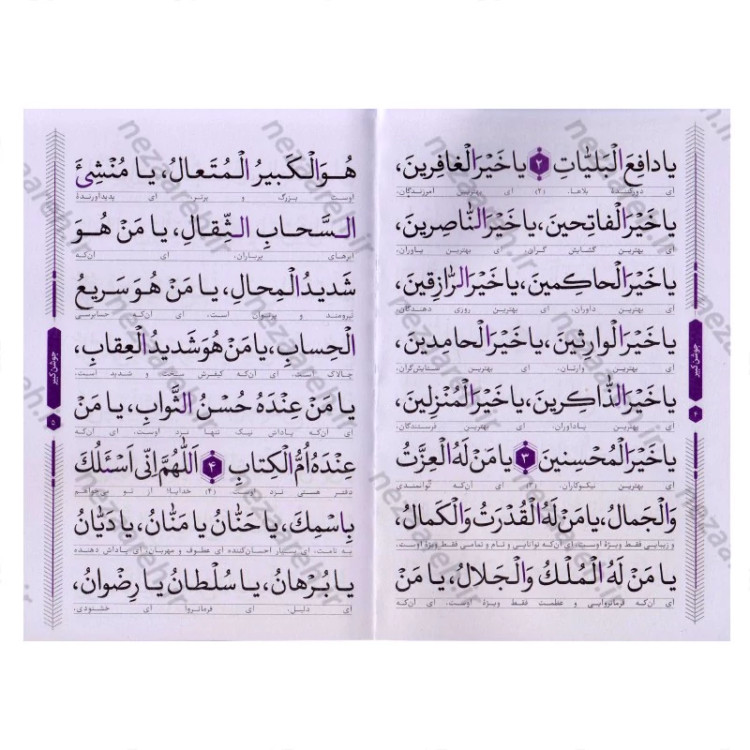 یا دافِعَ الْبَلِیّاتِ ﴿۲﴾ یا خَیْرَ الْغافِرینَ،
ای دورکنندهٔ بلاها. (۲) ای بهترین آمرزندگان،
یا خَیْرَ الْفاتِحینَ، یا خَیْرَ النّاصِرینَ،
ای بهترین گشایش گران، ای بهترین یاوران،
یا خَیْرَ الْحاکِمینَ، یا خَیْرَ الرّازِقینَ،
ای بهترین داوران، ای بهترین روزی دهندگان،
یا خَیْرَ الْوارِثینَ، یا خَیْرَ الْحامِدینَ،
ای بهترین وارثان، ای بهترین ستایش‌گران،
یا خَیْرَ الذّاکِرینَ، یا خَیْرَ الْمُنْزِلینَ،
ای بهترین یادآوران، ای بهترین فرستندگان،
یا خَیْرَ الْمُحْسِنینَ ﴿۳﴾ یا مَنْ لَهُ الْعِزَّةُ
ای بهترین نیکوکاران. (۳) ای آن‌که توانمندی
وَالْجَمالُ، یا مَنْ لَهُ الْقُدْرَةُ وَالْکَمالُ،
و زیبایی فقط ویژهٔ اوست، ای آن‌که توانایی و تام و تمامی فقط ویژهٔ اوست،
یا مَنْ لَهُ الْمُلْکُ وَالْجَلالُ، یا مَنْ
ای آن‌که فرمانروایی و عظمت فقط ویژهٔ اوست، ای آن‌که
جوشن کبیر
۴
هُوَ الْکَبیرُ الْمُتَعالُ، یا مُنْشِئَ
اوست بزرگ و برتر، ای پدیدآورندهٔ
السَّحابِ الثِّقالِ، یا مَنْ هُوَ
ابرهای پرباران، ای آن‌که
شَدیدُ الْمِحالِ، یا مَنْ هُوَ سَریعُ
نیرومند و پرتوان است، ای آن‌که حسابرسی
الْحِسابِ، یا مَنْ هُوَ شَدیدُ الْعِقابِ،
چالاک است، ای آن‌که کیفرش سخت و شدید است،
یا مَنْ عِنْدَهُ حُسْنُ الثَّوابِ، یا مَنْ
ای آن‌که پاداش نیک تنها نزد اوست، ای آن‌که
عِنْدَهُ اُمُّ الْکِتابِ ﴿۴﴾ اَللّهُمَّ اِنّی اَسْئَلُکَ
دفتر هستی نزد اوست. (۴) خدایا! از تو می‌خواهم
بِاسْمِکَ، یا حَنّانُ یا مَنّانُ، یا دَیّانُ
به نامت، ای بسیار احسان‌کننده ای عطوف و مهربان، ای پاداش دهنده
یا بُرْهانُ، یا سُلْطانُ یا رِضْوانُ،
ای دلیل، ای فرمانروا ای خشنودی،
جوشن کبیر
۵
nezzareh.ir